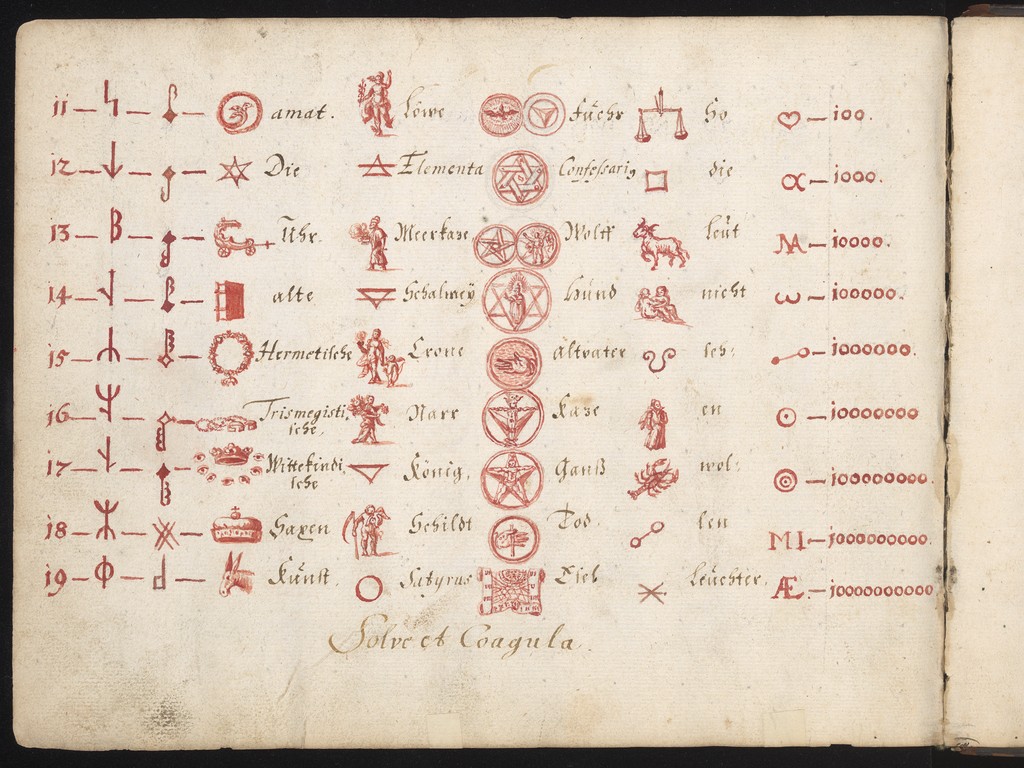 11 amat. Löwe Füchs So 100.
12 Die Elementa Confessarig die 1000.
13 Uhr. Meerkaze Wolff leüt M 10000.
14 alte Schalmey Hünd nicht ω 100000.
15 Hermetische Crone Altvater seh: 1000000.
16 Trismegisti: Narr Kaze en 10000000
sche.
17 Wittekindi: König, Ganß wol: 100000000.
sche
18 Saxen Schildt Tod len MI 1000000000.
19 Künst. Satyrus Ziel leüchter. Æ 10000000000
Solve et Coagula.